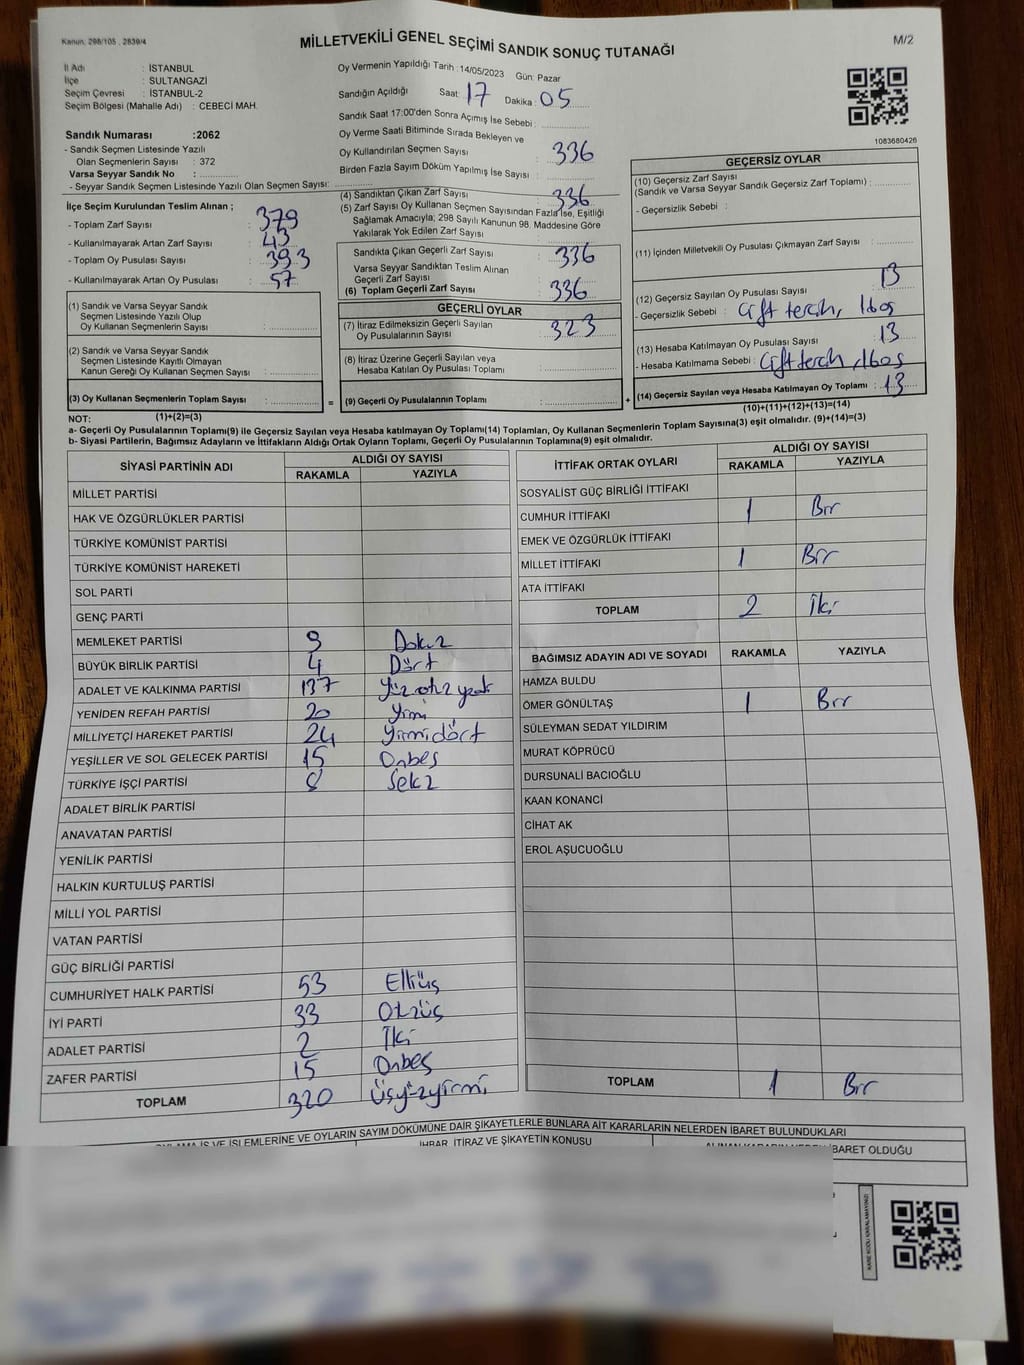 Kanun: 298/105 , 2839/4
MİLLETVEKİLİ GENEL SEÇİMİ SANDIK SONUÇ TUTANAĞI
M/2
İl Adı : İSTANBUL
İlçe : SULTANGAZİ
Seçim Çevresi : İSTANBUL-2
Seçim Bölgesi (Mahalle Adı) : CEBECİ MAH.
Sandık Numarası :2062
- Sandık Seçmen Listesinde Yazılı
Olan Seçmenlerin Sayısı : 372
Varsa Seyyar Sandık No :
- Seyyar Sandık Seçmen Listesinde Yazılı Olan Seçmen Sayısı:
İlçe Seçim Kurulundan Teslim Alınan ;
- Toplam Zarf Sayısı : 379
- Kullanılmayarak Artan Zarf Sayısı : 43
- Toplam Oy Pusulası Sayısı : 393
- Kullanılmayarak Artan Oy Pusulası : 57
(1) Sandık ve Varsa Seyyar Sandık
Seçmen Listesinde Yazılı Olup
Oy Kullanan Seçmenlerin Sayısı :
(2) Sandık ve Varsa Seyyar Sandık
Seçmen Listesinde Kayıtlı Olmayan
Kanun Gereği Oy Kullanan Seçmen Sayısı :
(3) Oy Kullanan Seçmenlerin Toplam Sayısı :
(1)+(2)=(3)
Oy Vermenin Yapıldığı Tarih :14/05/2023 Gün: Pazar
Sandığın Açıldığı Saat: 17 Dakika : 05
Sandık Saat 17:00'den Sonra Açımış İse Sebebi :
Oy Verme Saati Bitiminde Sırada Bekleyen ve
Oy Kullandırılan Seçmen Sayısı : 336
Birden Fazla Sayım Döküm Yapılmış İse Sayısı :
(4) Sandıktan Çıkan Zarf Sayısı : 336
(5) Zarf Sayısı Oy Kullanan Seçmen Sayısından Fazla İse, Eşitliği
Sağlamak Amacıyla; 298 Sayılı Kanunun 98. Maddesine Göre
Yakılarak Yok Edilen Zarf Sayısı :
Sandıkta Çıkan Geçerli Zarf Sayısı : 336
Varsa Seyyar Sandıktan Teslim Alınan
Geçerli Zarf Sayısı :
(6) Toplam Geçerli Zarf Sayısı : 336
GEÇERLİ OYLAR
(7) İtiraz Edilmeksizin Geçerli Sayılan
Oy Pusulalarının Sayısı : 323
(8) İtiraz Üzerine Geçerli Sayılan veya
Hesaba Katılan Oy Pusulaları Toplamı :
= (9) Geçerli Oy Pusulalarının Toplamı : +
1083680426
GEÇERSİZ OYLAR
(10) Geçersiz Zarf Sayısı
(Sandık ve Varsa Seyyar Sandık Geçersiz Zarf Toplamı) :
- Geçersizlik Sebebi :
(11) İçinden Milletvekili Oy Pusulası Çıkmayan Zarf Sayısı :
(12) Geçersiz Sayılan Oy Pusulası Sayısı : 13
- Geçersizlik Sebebi : Çift tercih, 1boş
(13) Hesaba Katılmayan Oy Pusulası Sayısı : 13
- Hesaba Katılmama Sebebi : Çift tercih, 1boş
(14) Geçersiz Sayılan veya Hesaba Katılmayan Oy Toplamı : 13
(10)+(11)+(12)+(13)=(14)
NOT:
a- Geçerli Oy Pusulalarının Toplamı(9) ile Geçersiz Sayılan veya Hesaba katılmayan Oy Toplamı(14) Toplamları, Oy Kullanan Seçmenlerin Toplam Sayısına(3) eşit olmalıdır. (9)+(14)=(3)
b- Siyasi Partilerin, Bağımsız Adayların ve İttifakların Aldığı Ortak Oyların Toplamı, Geçerli Oy Pusulalarının Toplamına(9) eşit olmalıdır.
SİYASİ PARTİNİN ADI ALDIĞI OY SAYISI
RAKAMLA YAZIYLA
MİLLET PARTİSİ
HAK VE ÖZGÜRLÜKLER PARTİSİ
TÜRKİYE KOMÜNİST PARTİSİ
TÜRKİYE KOMÜNİST HAREKETİ
SOL PARTİ
GENÇ PARTİ
MEMLEKET PARTİSİ 9 Dokuz
BÜYÜK BİRLİK PARTİSİ 4 Dört
ADALET VE KALKINMA PARTİSİ 137 Yüz otuz yedi
YENİDEN REFAH PARTİSİ 20 Yirmi
MİLLİYETÇİ HAREKET PARTİSİ 24 Yirmidört
YEŞİLLER VE SOL GELECEK PARTİSİ 15 Onbeş
TÜRKİYE İŞÇİ PARTİSİ 8 Sekiz
ADALET BİRLİK PARTİSİ
ANAVATAN PARTİSİ
YENİLİK PARTİSİ
HALKIN KURTULUŞ PARTİSİ
MİLLİ YOL PARTİSİ
VATAN PARTİSİ
GÜÇ BİRLİĞİ PARTİSİ
CUMHURİYET HALK PARTİSİ 53 Elliüç
İYİ PARTİ 33 Otuzüç
ADALET PARTİSİ 2 İki
ZAFER PARTİSİ 15 Onbeş
TOPLAM 320 Üçyüzyirmi
İTTİFAK ORTAK OYLARI ALDIĞI OY SAYISI
RAKAMLA YAZIYLA
SOSYALİST GÜÇ BİRLİĞİ İTTİFAKI
CUMHUR İTTİFAKI 1 Bir
EMEK VE ÖZGÜRLÜK İTTİFAKI
MİLLET İTTİFAKI 1 Bir
ATA İTTİFAKI
TOPLAM 2 İki
BAĞIMSIZ ADAYIN ADI VE SOYADI RAKAMLA YAZIYLA
HAMZA BULDU
ÖMER GÖNÜLTAŞ 1 Bir
SÜLEYMAN SEDAT YILDIRIM
MURAT KÖPRÜCÜ
DURSUNALİ BACIOĞLU
KAAN KONANCİ
CİHAT AK
EROL AŞUCUOĞLU
TOPLAM 1 Bir
İŞ VE İŞLEMLERİNE VE OYLARIN SAYIM DÖKÜMÜNE DAİR ŞİKAYETLERLE BUNLARA AİT KARARLARIN NELERDEN İBARET BULUNDUKLARI
İHBAR, İTİRAZ VE ŞİKAYETİN KONUSU ALINAN KARARIN NEDEN İBARET OLDUĞU
KARE KODU KARALAMAYINIZ!